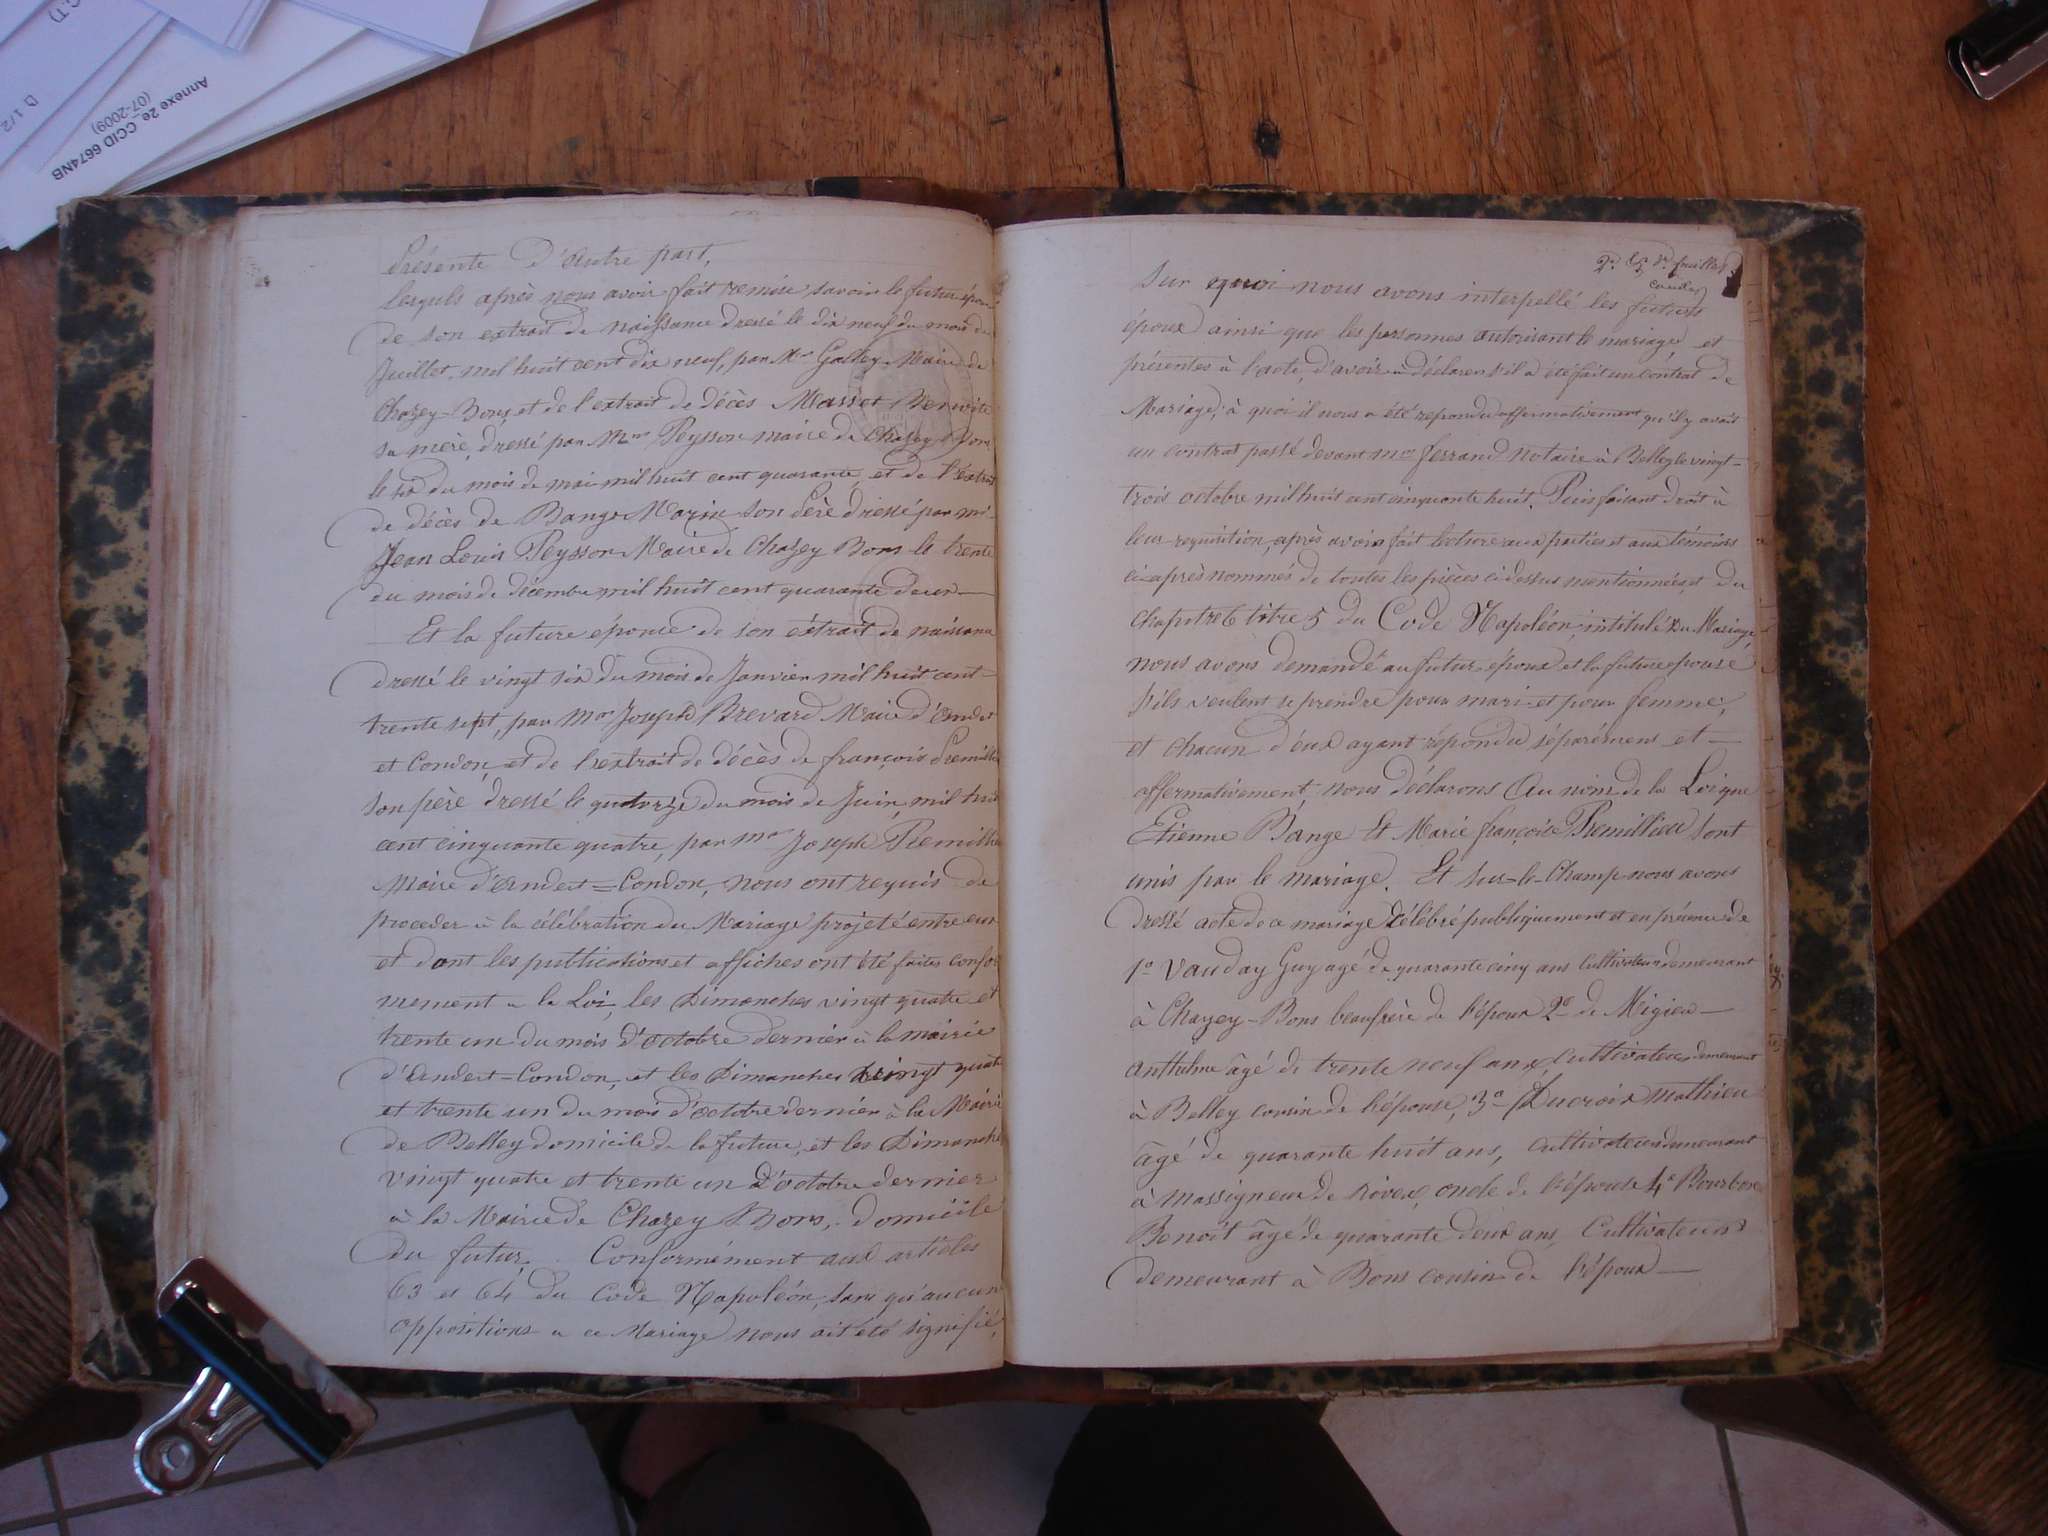 Annexe 2e CCID 6674NB
(07-2009)
1/2
Présente d'autre part,
lesquels après nous avoir fait remise savoir le futur époux
de son extrait de naissance dressé le dix neuf du mois de
Juillet mil huit cent dix neuf, par Mr Galley Maire de
Chazey-Bons, et de l'extrait de décès Massot Benoite
sa mère, dressé par Mr Peysson maire de Chazey Bons
le six du mois de mai mil huit cent quarante, et de l'extrait
de décès de Bange Marin son Père dressé par mr
Jean Louis Peysson Maire de Chazey Bons le trente
du mois de décembre mil huit cent quarante deux
Et la future épouse de son extrait de naissance
dressé le vingt six du mois de Janvier mil huit cent
trente sept, par Mr Joseph Brevard Maire d'Andert
et Condon, et de l'extrait de décès de françois Premillieu
son père dressé le quatorze du mois de Juin, mil huit
cent cinquante quatre, par mr Joseph Premillieu
Maire d'Andert=Condon, nous ont requis de
proceder à la célébration du Mariage projeté entre eux
et dont les publications et affiches ont été faites confor
mement a la Loi, les Dimanches vingt quatre et
trente un du mois d'octobre dernier à la mairie
d'Andert=Condon, et les Dimanches vingt quatre
et trente un du mois d'octobre dernier à la Mairie
de Belley domicile de la future, et les Dimanches
vingt quatre et trente un d'octobre dernier
à la Mairie de Chazey Bons, domicile
du futur. Conformément aux articles
63 et 64 du Code Napoléon, sans qu'aucun
oppositions a ce Mariage nous ait été signifié,
2e feuillet
Sur quoi nous avons interpellé les futurs
époux ainsi que les personnes autorisant le mariage et
présentes à l'acte, d'avoir a déclarer s'il a été fait un contrat de
Mariage, à quoi il nous a été repondu affermativement qu'il y avait
un contrat passé devant me ferrand Notaire à Belley le vingt-
trois octobre mil huit cent cinquante huit. Puis faisant droit à
leur requisition, après avoir fait lecture aux parties et aux témoins
ci-après nommés de toutes les pièces ci dessus mentionnées, et du
chapitre 6 titre 5 du Code Napoléon, intitulé Du Mariage,
nous avons demandé au futur époux et la future épouse
s'ils veulent se prendre pour mari et pour femme,
et chacun d'eux ayant répondu séparément et
affermativement, nous déclarons Au nom de la Loi que
Etienne Bange Et Marie françoise Premillieu sont
unis par le mariage. Et sur-le-Champ nous avons
dressé acte de ce mariage célébré publiquement et en présence de
1o Vauday Guy agé de quarante cinq ans cultivateur demeurant
à Chazey-Bons beaufrère de l'époux 2o de Migieu
anthelme âgé de trente neuf ans, cultivateur demeurant
à Belley cousin de l'épouse, 3o Ducroix Mathieu
âgé de quarante huit ans, cultivateur demeurant
à Massigneux de rives, oncle de l'épouse 4o Bourbon
Benoît âgé de quarante deux ans, Cultivateur
demeurant à Bons cousin de l'époux